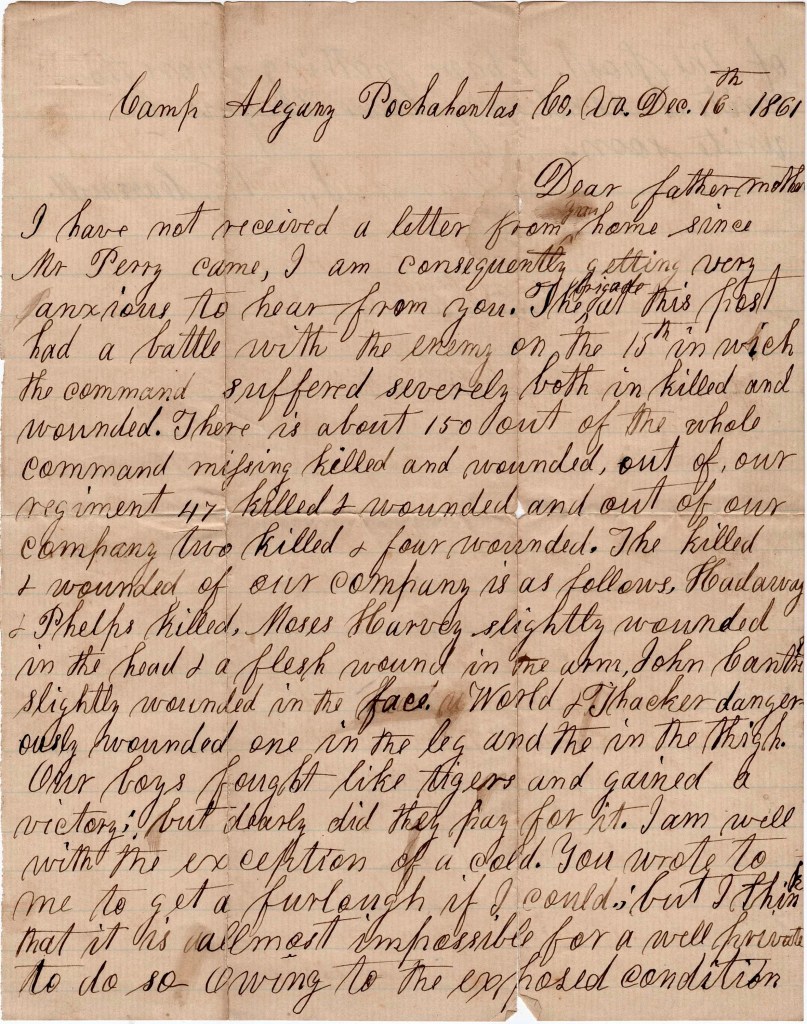 Camp Alegany Pochahontas Co, Va. Dec. 16th 1861
Dear father mother
I have not received a letter from home since
Mr Perry came, I am consequently getting very
anxious to hear from you. The brigade at this post
had a battle with the enemy on the 15th in wich
the command suffered severely both in killed and
wounded. There is about 150 out of the whole
command missing killed and wounded, out of, our
regiment 47 killed & wounded and out of our
company two killed & four wounded. The killed
& wounded of our company is as follows, Hadaway
& Phelps killed, Moses Harvey slightly wounded
in the head & a flesh wound in the arm, John
slightly wounded in the face. World & Thacker danger
ously wounded one in the leg and the in the thigh.
Our boys fought like tigers and gained a
victory; but dearly did they pay for it. I am well
with the exception of a cold. You wrote to
me to get a furlough if I could; but I think
that it is allmost impossible for a well private
to do so owing to the exposed condition